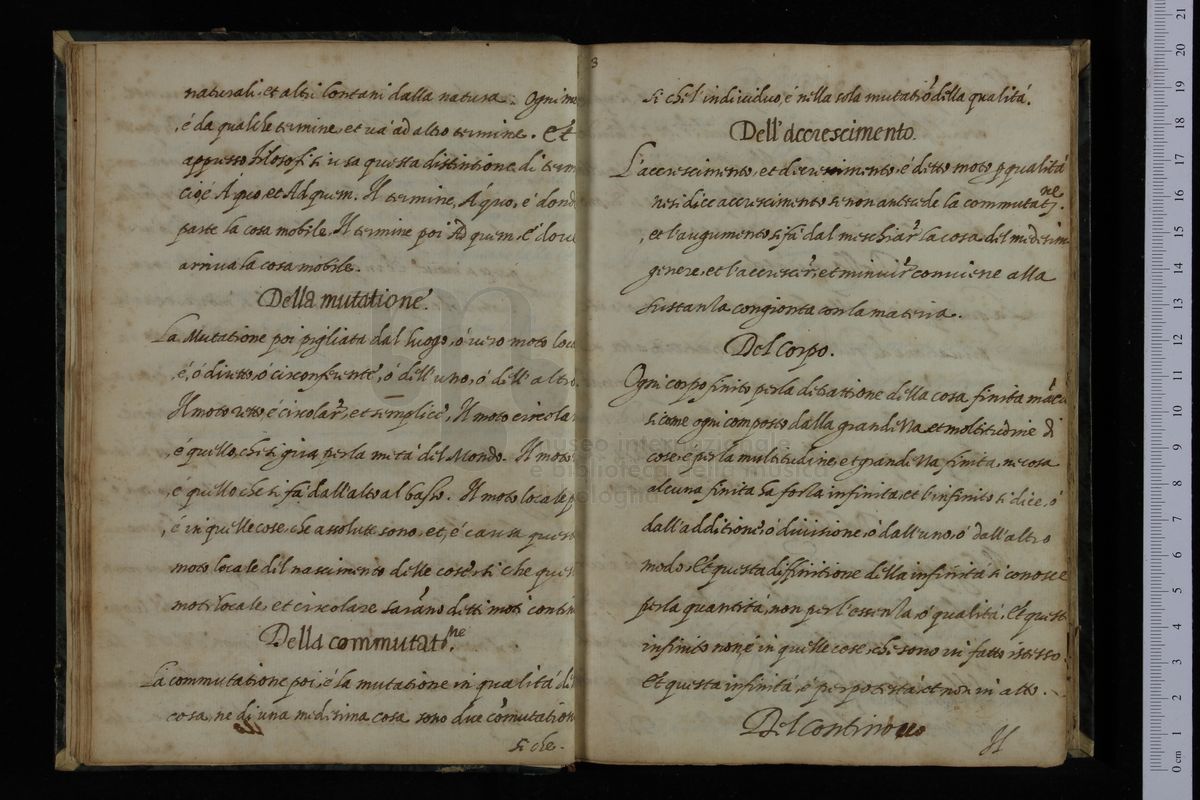 naturali, et altri lontani dalla natura. Ogni mo
, é da qualche termine, et uá ad altro termine. Et
appresso Filosofi si usa questa distintione di term
cioé Á quo, et Ad quem. Il termine, Á quo, é dond
parte la cosa mobile. Il termine poi Ad quem. é doue
arriua la cosa mobile.
Della mutatione.
La Mutatione poi pigliata dal luogo, ó uero moto loca
, é, ó diretto, ó circonferente, ó dell'uno, ó dell'altro.
Il moto retto é circolar, et semplice, Il moto circolar
, é quello, che si gira per la metá del Mondo. Il moto
, é quello che si fá dall'alto al basso. Il moto locale p
, é in quelle cose, che assolute sono, et, é causa questo
moto locale del nascimento delle cose, si che quel
moti locale, et circolare sarano detti moti contin
Della commutat.ne
La commutatione poi, é la mutatione in qualitá di
cosa, ne di una medesima cosa sono due comutation
si che.
3
si che l'indiuiduo, é nella sola mutatio della qualitá.
Dell'Accrescimento.
L'accrescimento, et decrescimento, é detto moto p qualitá
ne si dice accrescimento se non antecede la commutat.ne
, et l'augumento si fá dal meschiar la cosa del medesim
genere, et l'accrescer, et minuir conuiene alla
sustanza congionta con la materia.
Del Corpo.
Ogni corpo finito per la detrattione della cosa finita máca
si come ogni composto dalla grandezza, et moltitudine di
cose, e per la multitudine, et grandezza finita, ne cosa
alcuna finita ha forza infinita, et l'infinito si dice, ó
dall'additione, ó diuisione, ó dall'uno, ó dall'altro
modo. Et questa diffinitione della infinitá si conosce
per la quantitá, non per l'essenza, ó qualitá. Et quest
infinito non é in quelle cose, che sono in fatto istesso.
Et questa infinitá, é per potestá, et non in atto.
Del Continouo
Il
0 cm 1 2 3 4 5 6 7 8 9 10 11 12 13 14 15 16 17 18 19 20 21
museo internazionale
e biblioteca della musica
di bologna